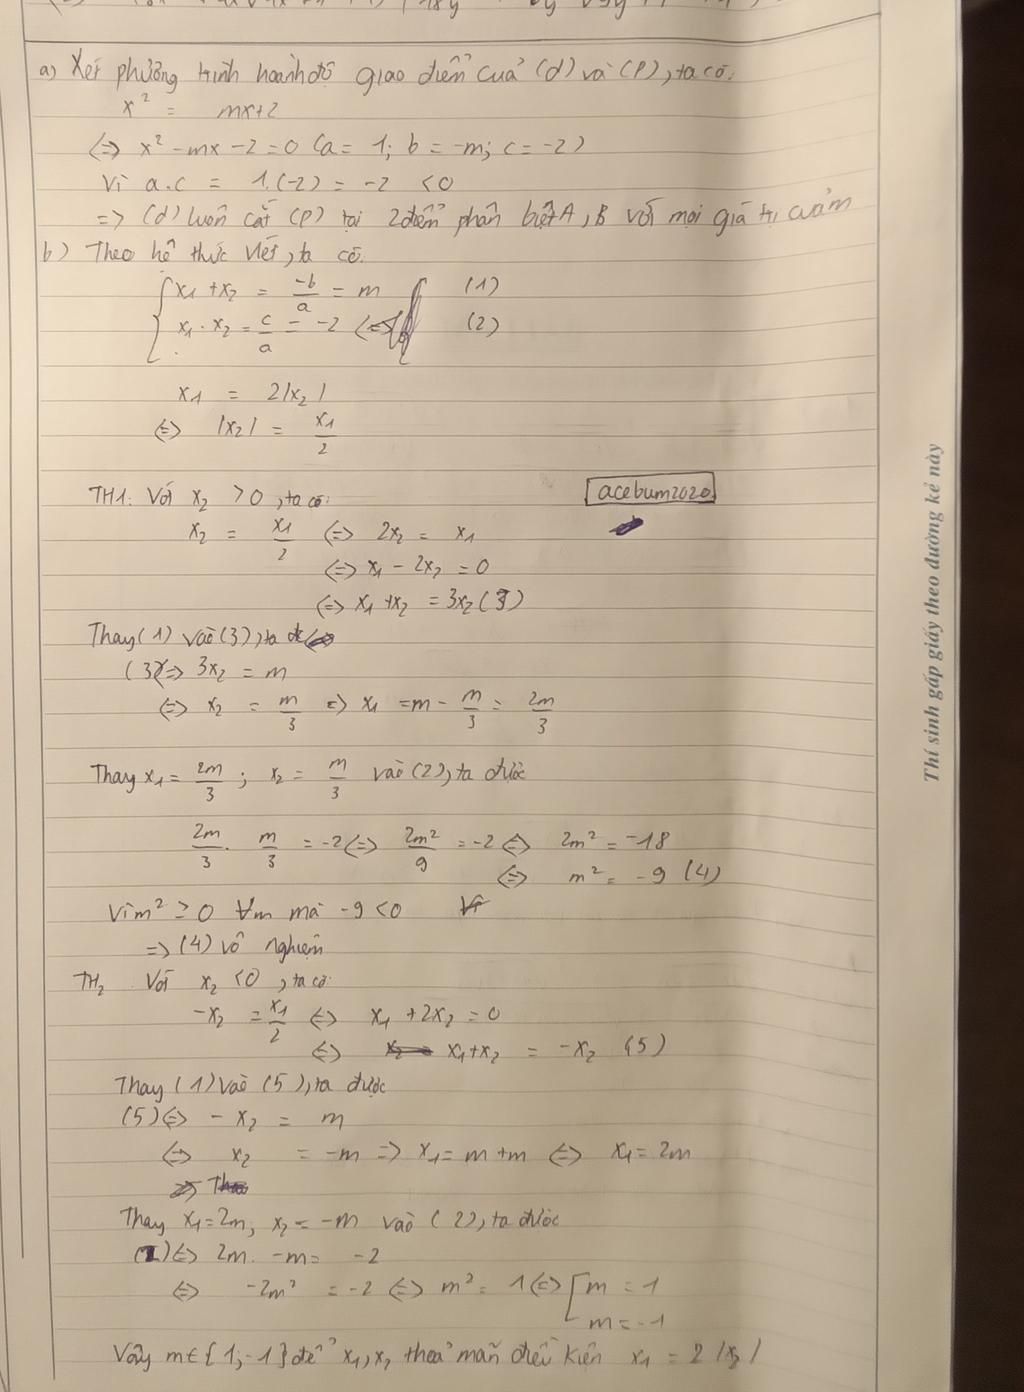 a) Xét phương trình hoành độ giao điểm của (d) và (P), ta có:
x² = mx+2
(=) x² - mx - 2 = 0 (a = 1; b = -m; c = -2)
Vì a.c = 1.(-2) = -2 < 0
=> (d) luôn cắt (P) tại 2 điểm phân biệt A, B với mọi giá trị của m
b) Theo hệ thức Viét, ta có:
x₁ + x₂ = -b/a = m (1)
x₁ . x₂ = c/a = -2 (2)
x₁ = 2|x₂|
(=) |x₂| = x₁/2
TH1: Với x₂ > 0, ta có:
acebum2020
x₂ = x₁/2 (=) 2x₂ = x₁
(=) x₁ - 2x₂ = 0
(=) x₁ + x₂ = 3x₂ (3)
Thay (1) vào (3), ta đ
(3) (=) 3x₂ = m
(=) x₂ = m/3 => x₁ = m - m/3 = 2m/3
Thay x₁ = 2m/3 ; x₂ = m/3 vào (2), ta được
2m/3 . m/3 = -2 (=) 2m²/9 = -2 (=) 2m² = -18
(=) m² = -9 (4)
Vì m² ≥ 0 ∀m mà -9 < 0
=> (4) vô nghiệm
TH₂ Với x₂ < 0, ta có:
-x₂ = x₁/2 (=) x₁ + 2x₂ = 0
(=) x₁ + x₂ = -x₂ (5)
Thay (1) vào (5), ta được
(5) (=) - x₂ = m
(=) x₂ = -m => x₁ = m + m (=) x₁ = 2m
Thay x₁ = 2m; x₂ = -m vào (2), ta được
(2) (=) 2m. -m = -2
(=) -2m² = -2 (=) m² = 1 (=) [m = 1
m = -1
Vậy m∈{1;-1} để x₁, x₂ thoả mãn điều kiện x₁ = 2|x₂|
Thí sinh gấp giấy theo đường kẻ này